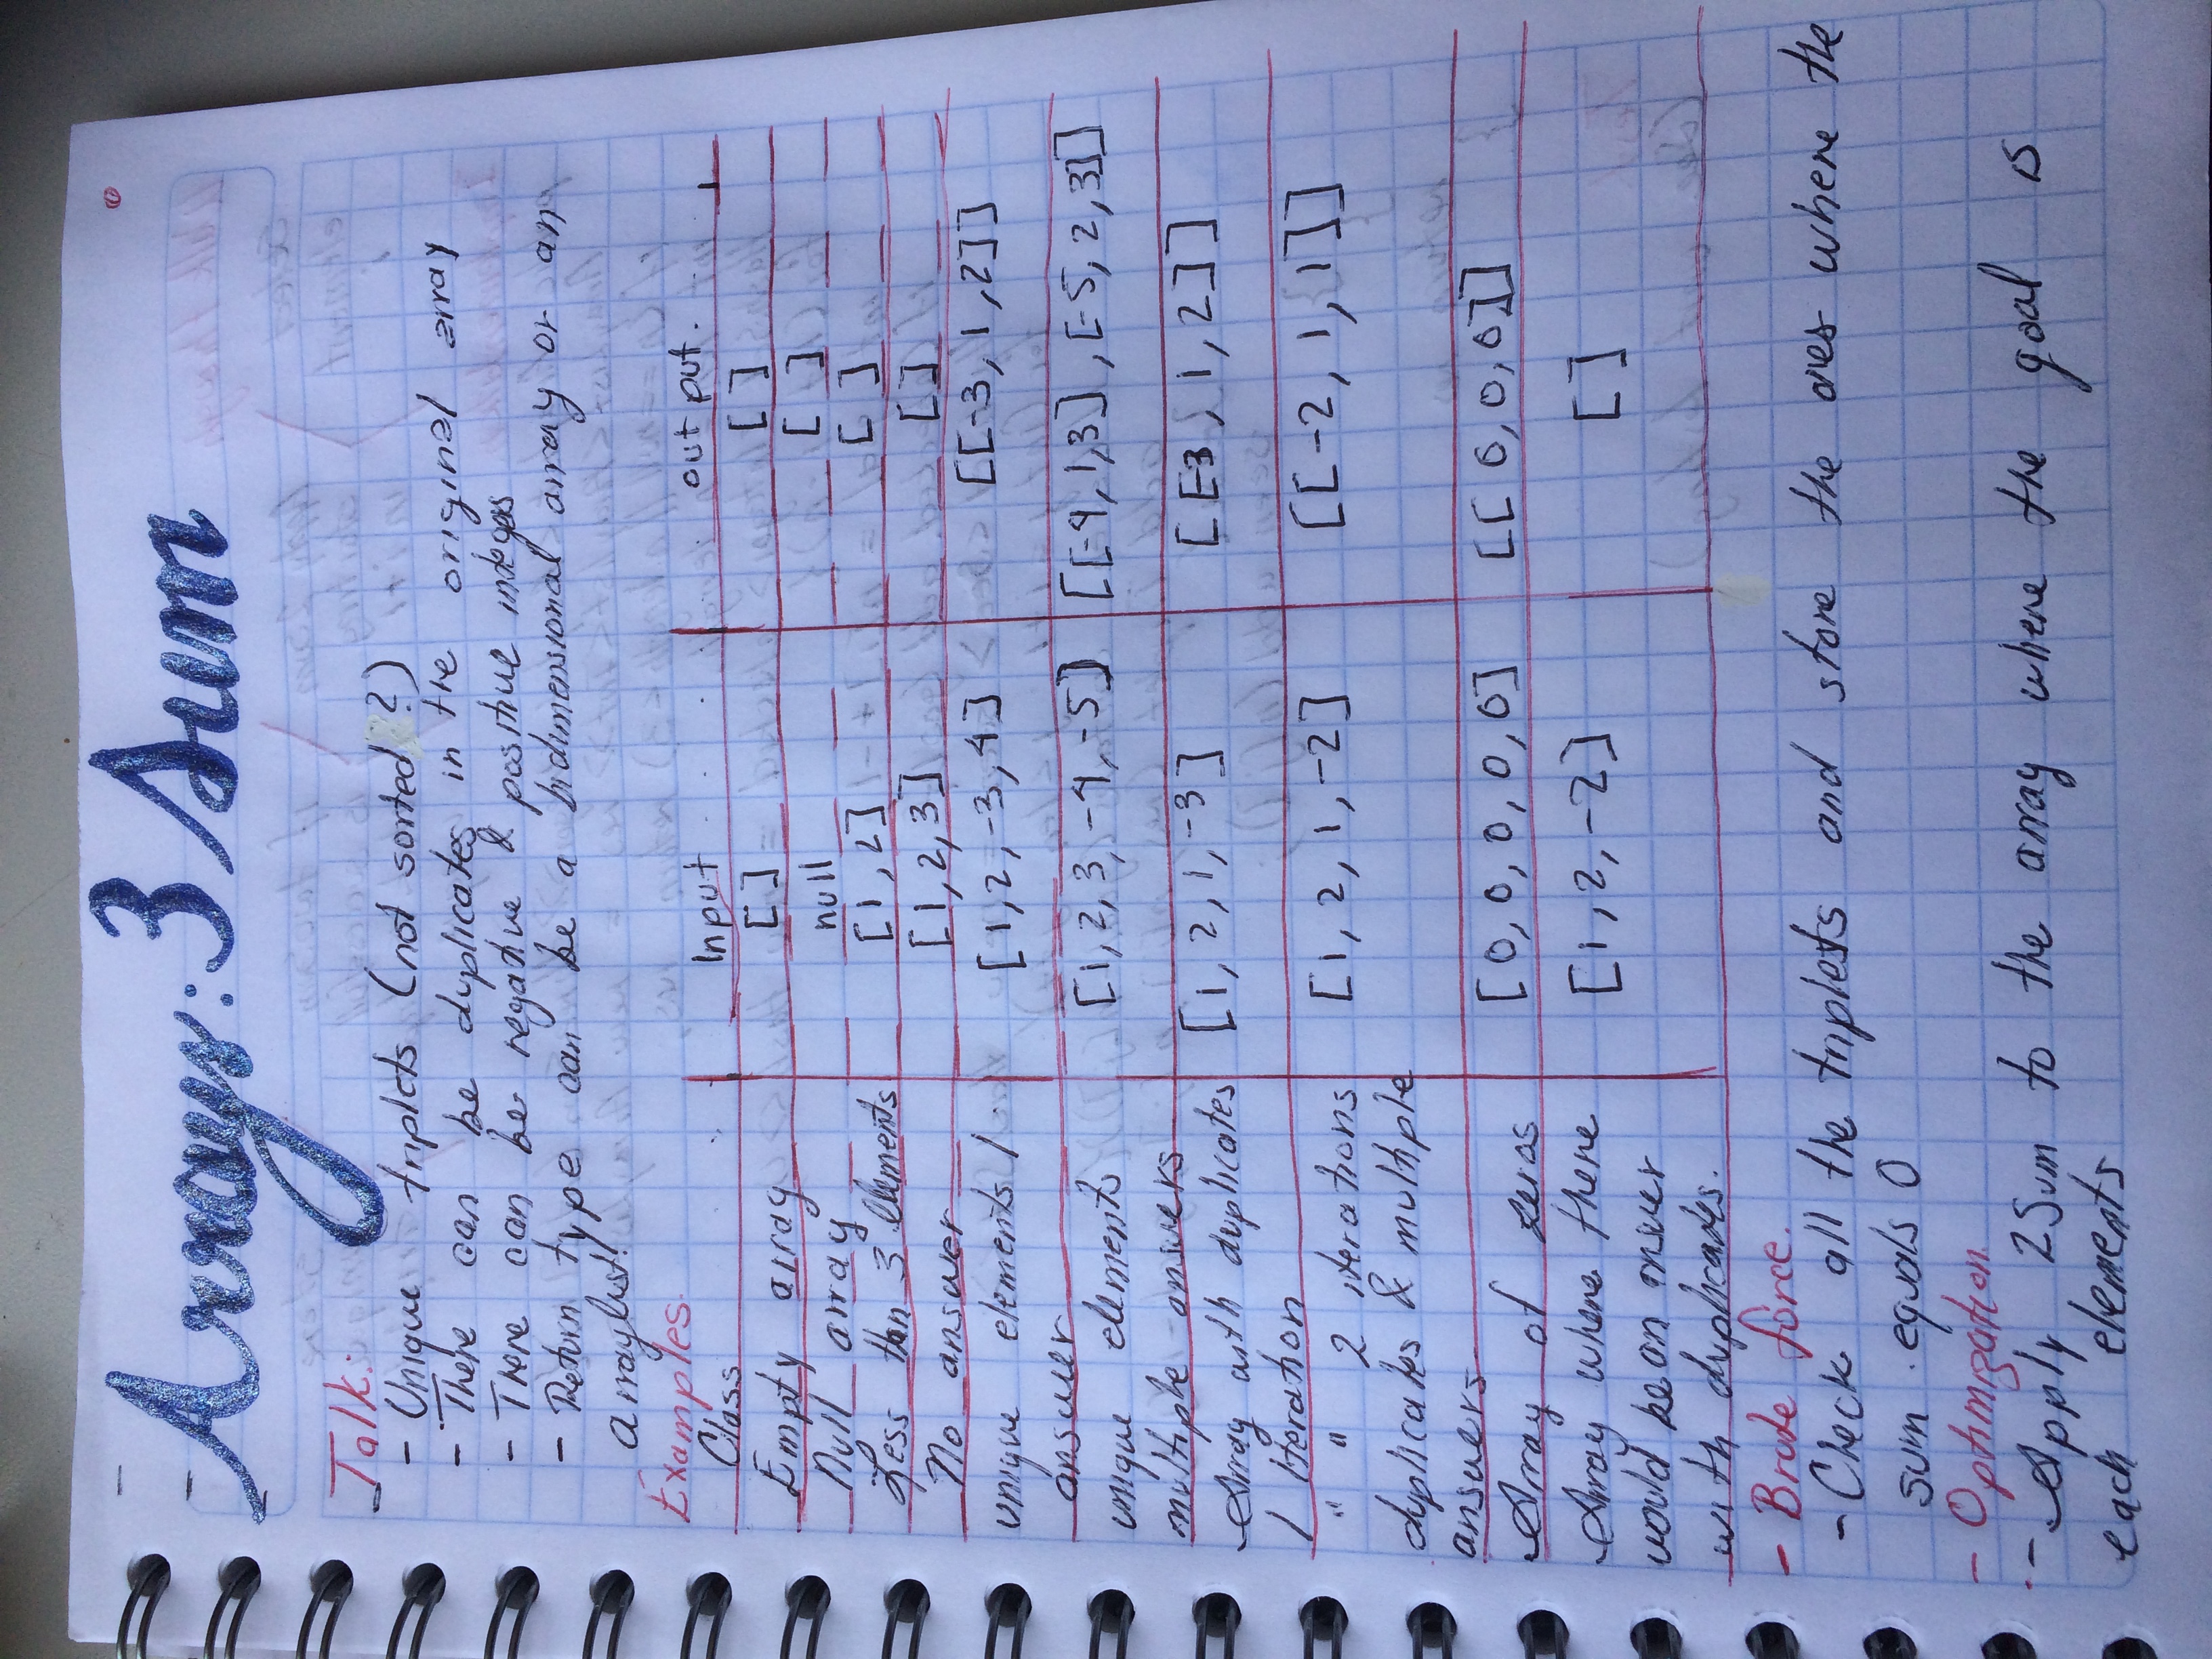 Arrays: 3 Sum
Talk:
- Unique triplets (not sorted ?)
- There can be duplicates in the original array
- There can be negative & positive integers
- Return type can be a bidimensional array or an
arraylist!
Examples.
Class Input output.
Empty array [ ] [ ]
Null array null [ ]
Less than 3 Elements [1,2] [ ]
No answer [1,2,3] [ ]
unique elements 1 [1,2,-3,4] [[-3,1,2]]
answer
unique elements [1,2,3,-4,-5] [[-4,1,3],[-5,2,3]]
multiple answers
Array with duplicates [1,2,1,-3] [[-3,1,2]]
1 Iteration
" " 2 iterations [1,2,1,-2] [[-2,1,1]]
duplicates & multiple
answers
Array of zeros [0,0,0,0,0] [[0,0,0]]
Array where there [1,2,-2] [ ]
would be an answer
with duplicades.
- Brute force.
- Check all the triplets and store the ones where the
sum equals 0
- Optimization
- Apply 2Sum to the array where the goal is
each elements